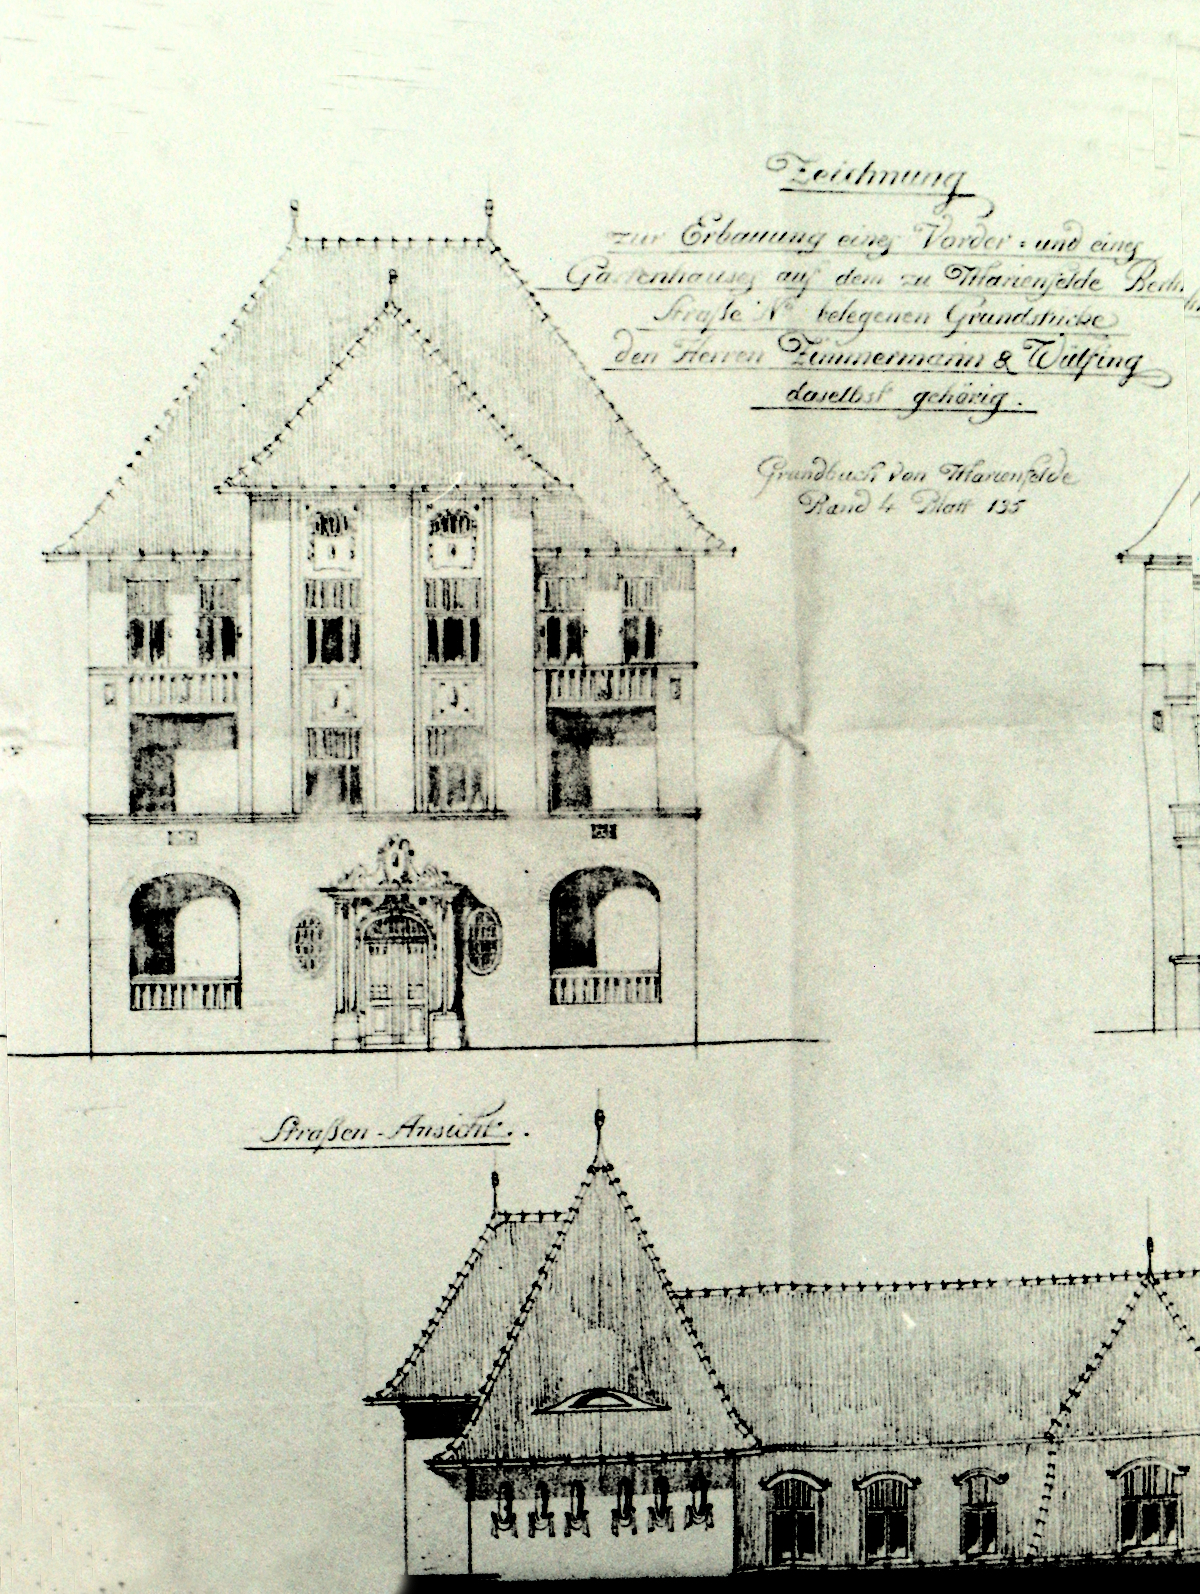 Zeichnung
zur Erbauung eines Vorder- und eines
Gartenhauses auf dem zu Marienfelde Berlin
Straße No belegenen Grundstücke
den Herren Zimmermann & Wülfing
daselbst gehörig.
Grundbuch von Marienfelde
Band 4 Blatt 135
Straßen-Ansicht.